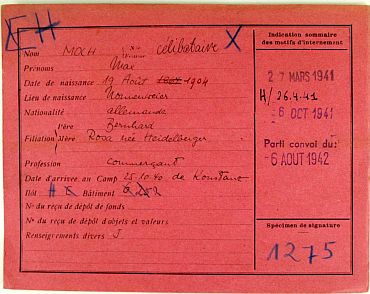 EH
Nom MOCH célibataire X
Prénoms Max
Date de naissance 19 Août 1904
Lieu de naissance Nonnenweier
Nationalité allemande
Filiation Père Bernhard
Mère Rosa née Heidelberger
Profession commerçant
Date d'arrivée au Camp 25.10.40 de Konstanz
Ilôt Bâtiment
No du reçu de dépôt de fonds
No du reçu de dépôt d'objets et valeurs
Renseignements divers J
Indication sommaire
des motifs d'internement
27 MARS 1941
H/ 26.4.41
-6 OCT 1941
Parti convoi du:
-6 AOUT 1942
Spécimen de signature
1275